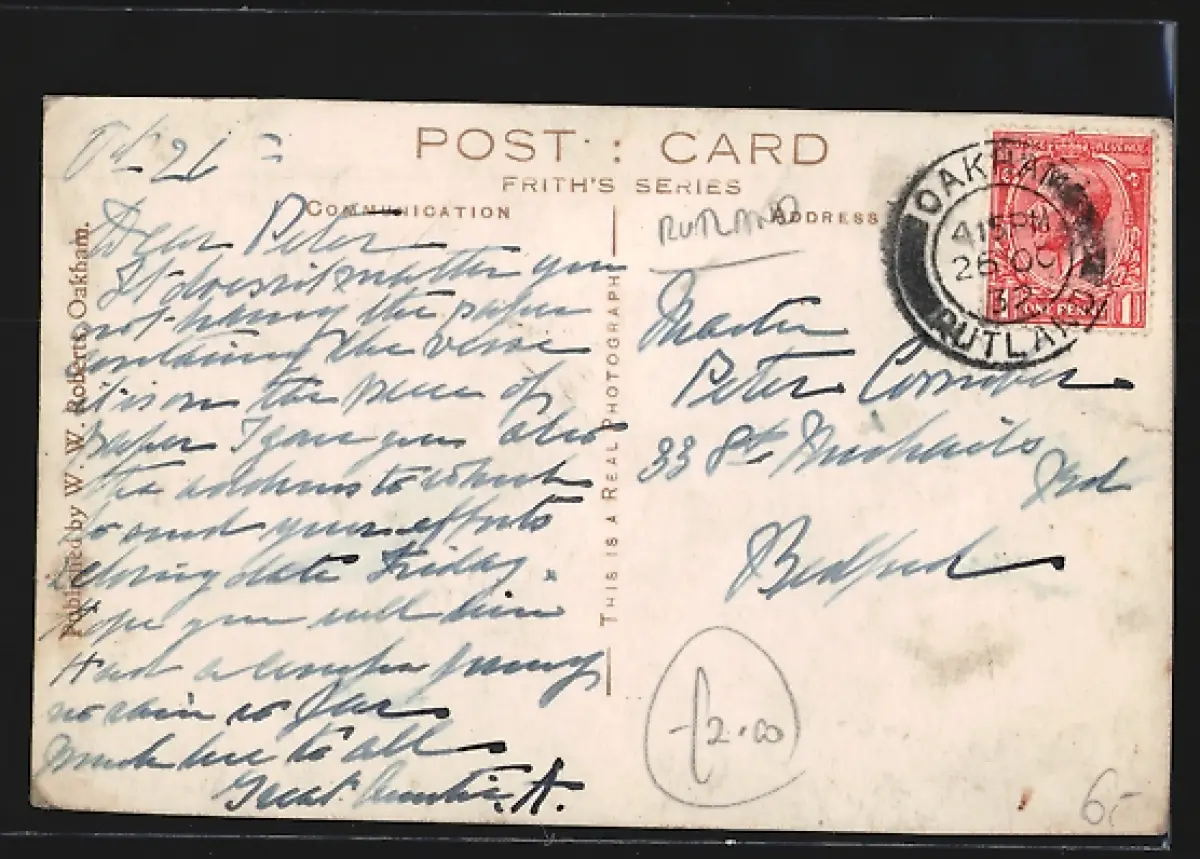 POST : CARD
FRITH'S SERIES
COMMUNICATION
ADDRESS
Published by W. W. Roberts, Oakham.
THIS IS A REAL PHOTOGRAPH
Oct 26
Dear Peter
It doesn't matter you
not having the paper
containing the verse
it is on the piece of
paper I gave you also
the address to which
to send your efforts
closing date Friday.
Hope you will win
Had a journey
no rain so far
Much love to all
Great Auntie A.
RUTLAND
Master
Peter
33 St Michaels
Rd
Bedford
OAKHAM
4 15 PM
26 OC
32
RUTLAND
REVENUE
ONE PENNY
1
£2.00
6,-